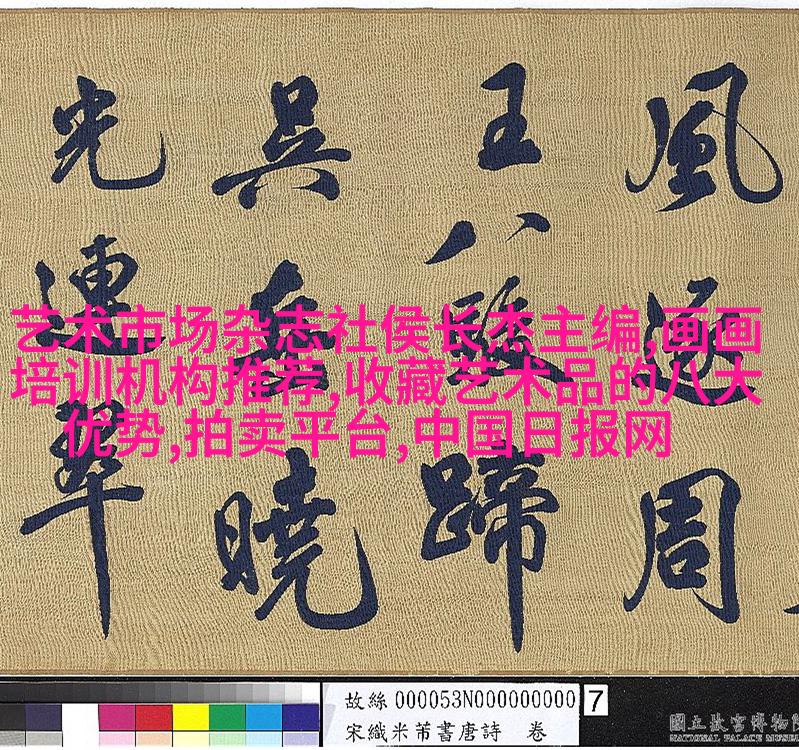 風逐周
王八駿蹄
吳曉
光連翠
艺术市场杂志社侯长杰主编,画画
培训机构推荐,收藏艺术品的八大
优势,拍卖平台,中国日报网
故絲000053N000000000 7
宋織米芾書唐詩 卷
國立故宮博物院
NATIONAL PALACE MUSEUM